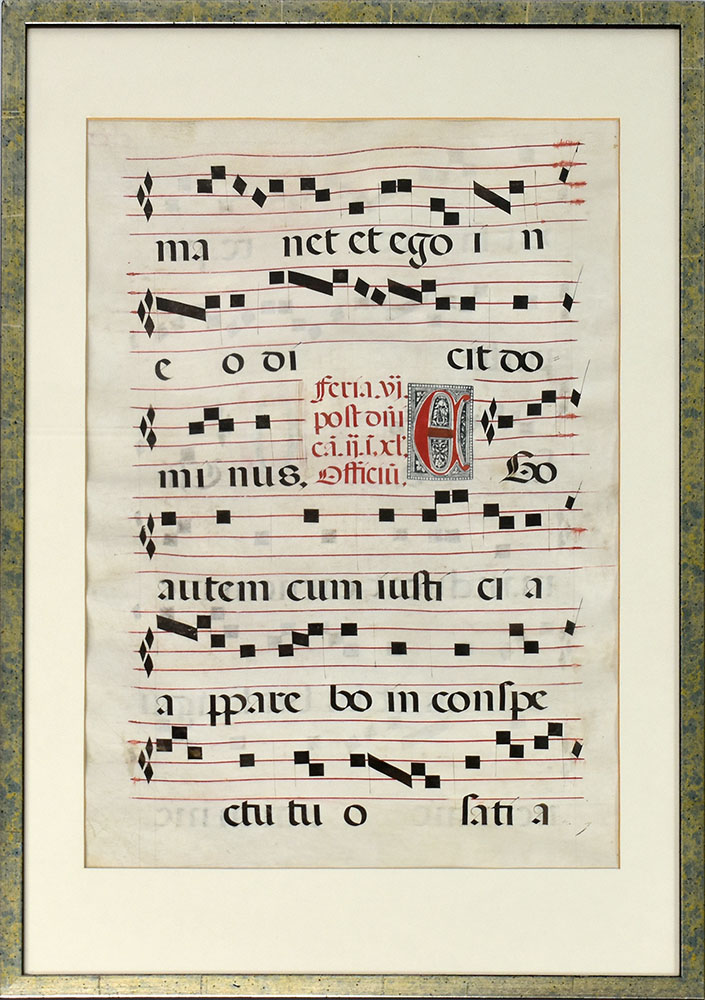 ma net et ego i n
e o di cit do
feria. vj.
post dñi
cā. ij. ſ. xl'.
Officiū.
mi nus. E Go
autem cum iusti ci a
a ppare bo in conspe
ctu tu o sati a